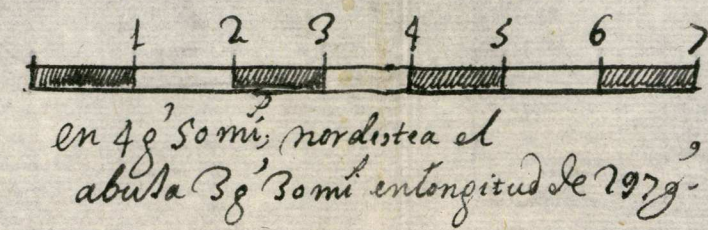 1 2 3 4 5 6 7
en 4 g.^s 50 mi.^s nordestea el
abuja 3 g.^s 30 mi.^s en longitud de 297 g.^s